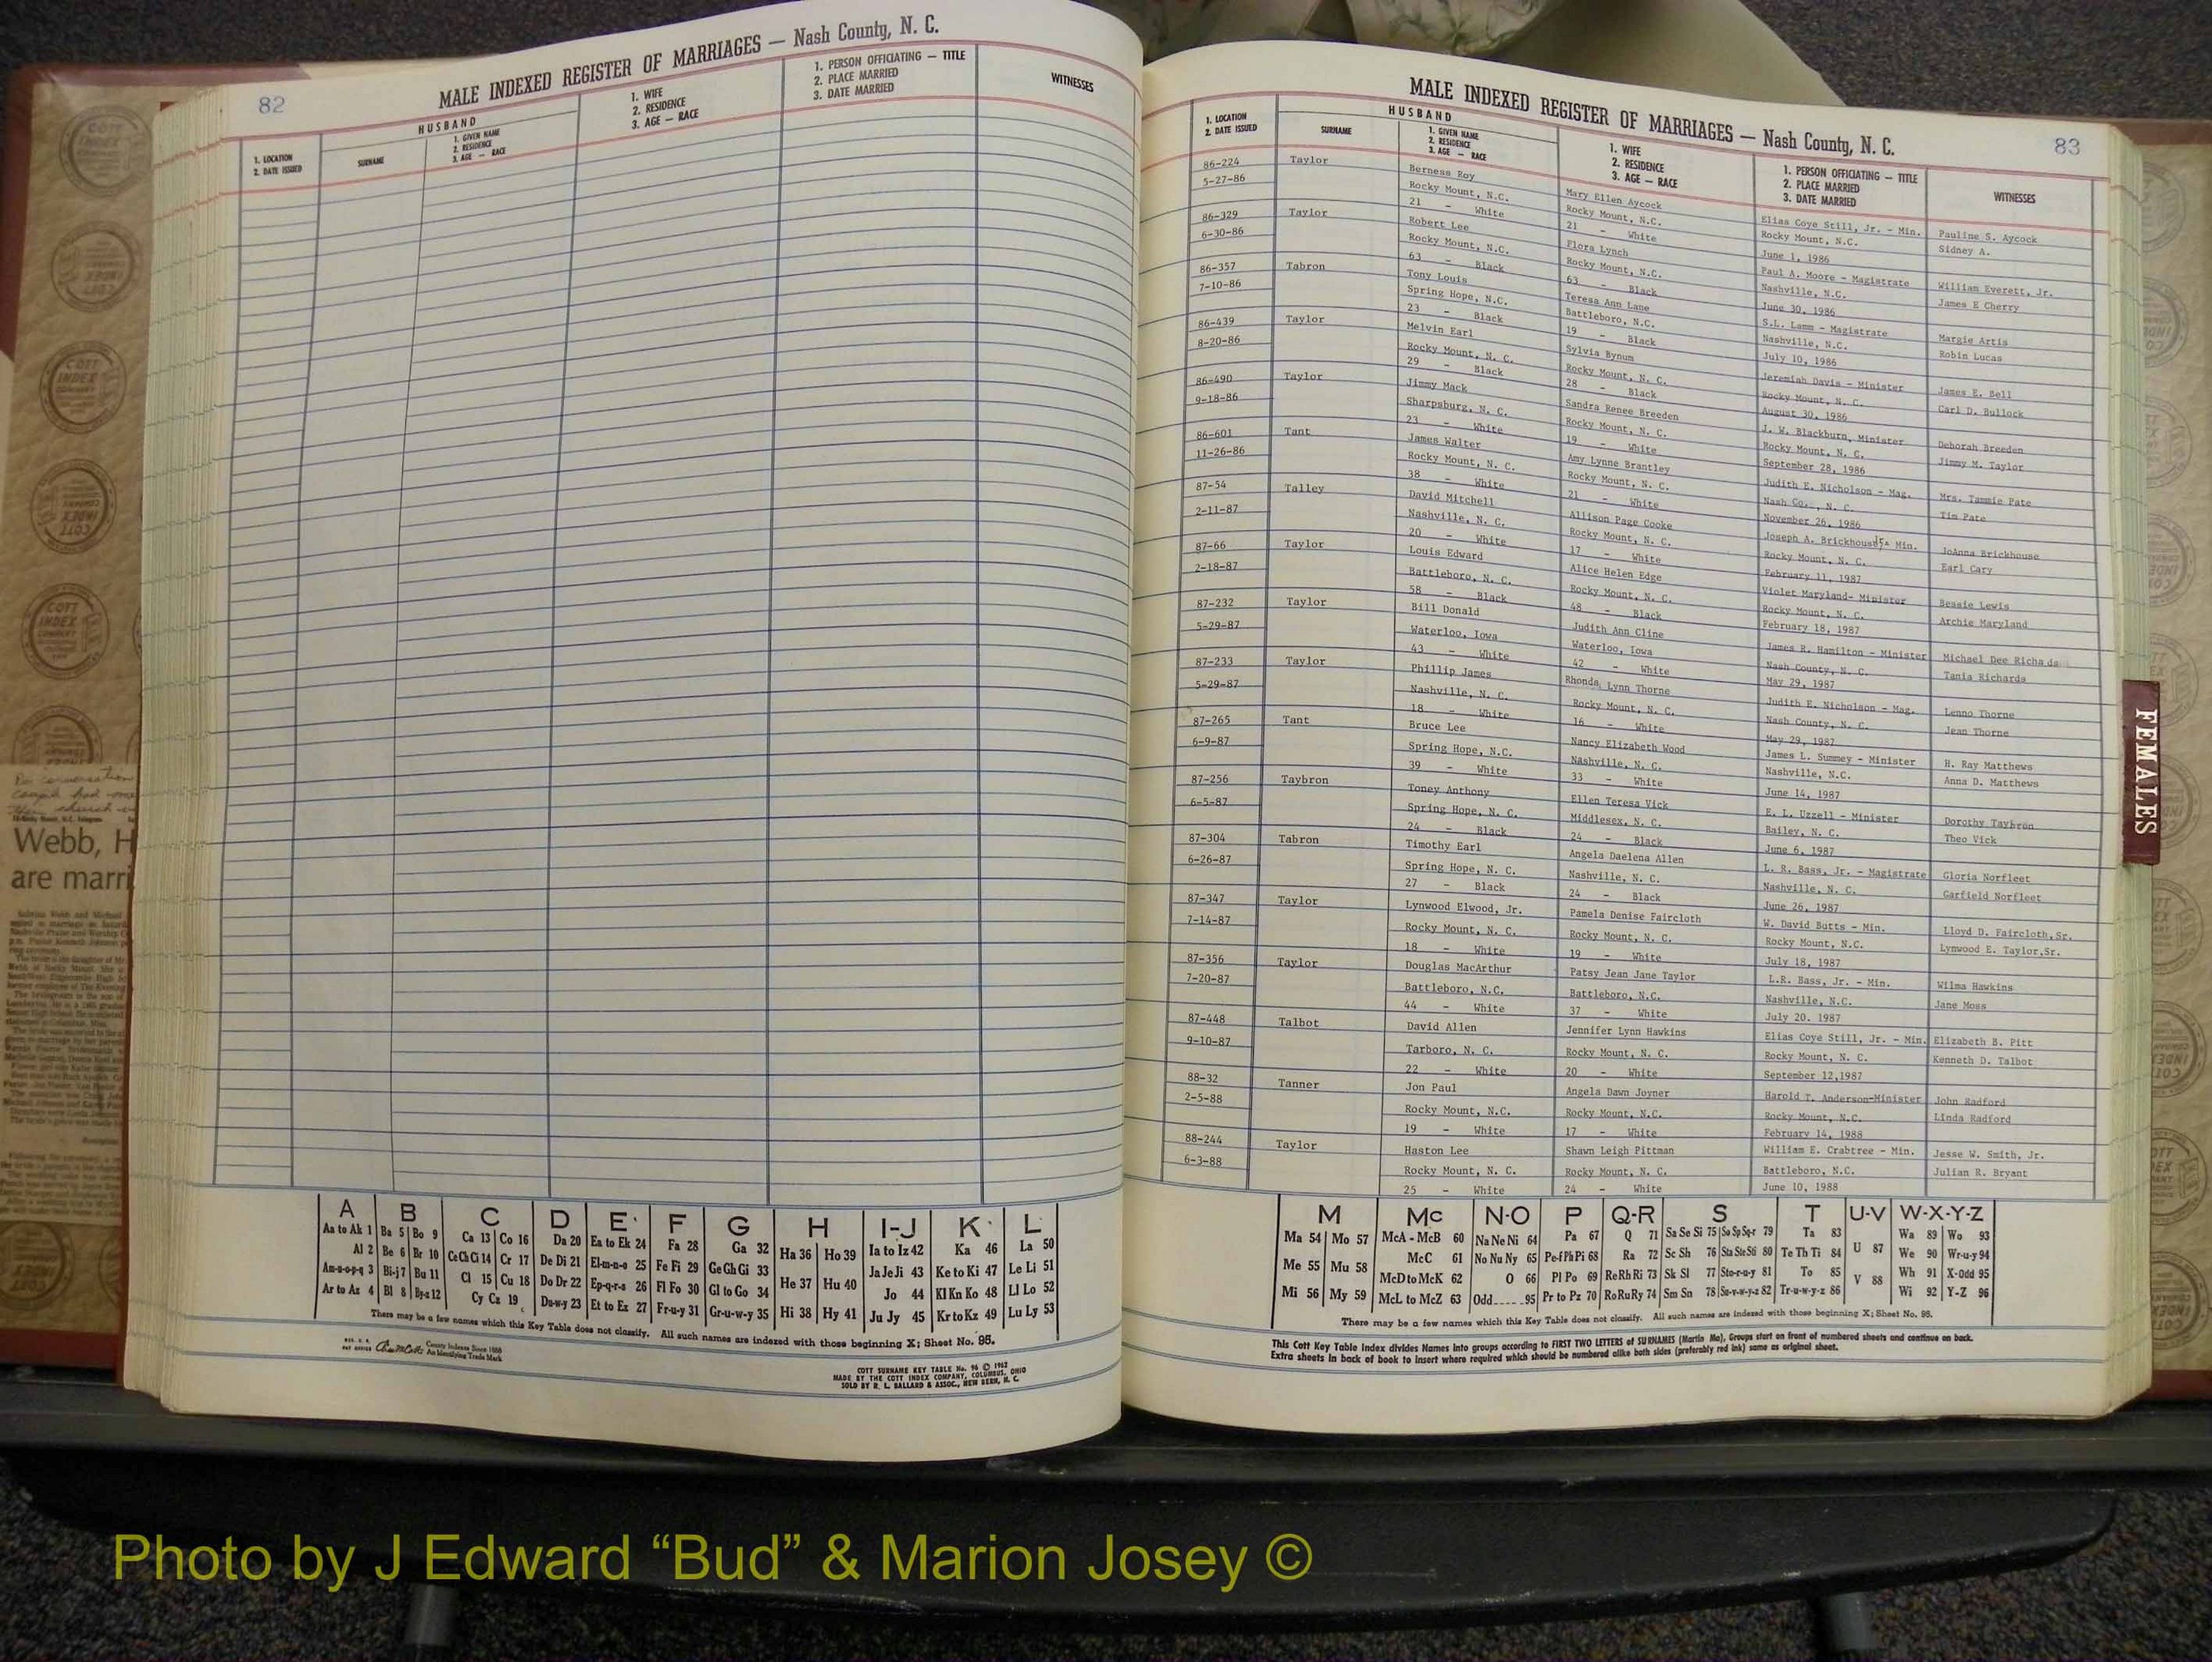 82
MALE INDEXED REGISTER OF MARRIAGES — Nash County, N. C.
1. LOCATION
2. DATE ISSUED
HUSBAND
SURNAME
1. GIVEN NAME
2. RESIDENCE
3. AGE — RACE
1. WIFE
2. RESIDENCE
3. AGE — RACE
1. PERSON OFFICIATING — TITLE
2. PLACE MARRIED
3. DATE MARRIED
WITNESSES
A B C D E F G H I-J K L
Aa to Ak 1 Ba 5 Bo 9 Ca 13 Co 16 Da 20 Ea to Ek 24 Fa 28 Ga 32 Ha 36 Ho 39 Ia to Iz 42 Ka 46 La 50
Al 2 Be 6 Br 10 Ce Ch Ci 14 Cr 17 De Di 21 El-m-n-o 25 Fe Fi 29 Ge Gh Gi 33 He 37 Hu 40 Ja Je Ji 43 Ke to Ki 47 Le Li 51
Am-n-o-p-q 3 Bi-j 7 Bu 11 Cl 15 Cu 18 Do Dr 22 Ep-q-r-s 26 Fl Fo 30 Gl to Go 34 Hi 38 Hy 41 Jo 44 Kl Kn Ko 48 Ll Lo 52
Ar to Az 4 Bl 8 By-z 12 Cy Cz 19 Du-w-y 23 Et to Ex 27 Fr-u-y 31 Gr-u-w-y 35 Ju Jy 45 Kr to Kz 49 Lu Ly 53
There may be a few names which this Key Table does not classify. All such names are indexed with those beginning X; Sheet No. 95.
County Indexes Since 1888
An Identifying Trade Mark
COTT SURNAME KEY TABLE No. 96 © 1962
MADE BY THE COTT INDEX COMPANY, COLUMBUS, OHIO
SOLD BY R. L. BALLARD & ASSOC., NEW BERN, N. C.
MALE INDEXED REGISTER OF MARRIAGES — Nash County, N. C.
83
1. LOCATION
2. DATE ISSUED
HUSBAND
SURNAME
1. GIVEN NAME
2. RESIDENCE
3. AGE — RACE
1. WIFE
2. RESIDENCE
3. AGE — RACE
1. PERSON OFFICIATING — TITLE
2. PLACE MARRIED
3. DATE MARRIED
WITNESSES
86-224 Taylor Berness Roy Mary Ellen Aycock Elias Coye Still, Jr. - Min. Pauline S. Aycock
5-27-86 Rocky Mount, N.C. Rocky Mount, N.C. Rocky Mount, N.C. Sidney A.
21 - White 21 - White June 1, 1986
86-329 Taylor Robert Lee Flora Lynch Paul A. Moore - Magistrate William Everett, Jr.
6-30-86 Rocky Mount, N.C. Rocky Mount, N.C. Nashville, N.C. James E Cherry
63 - Black 63 - Black June 30, 1986
86-357 Tabron Tony Louis Teresa Ann Lane S.L. Lamm - Magistrate Margie Artis
7-10-86 Spring Hope, N.C. Battleboro, N.C. Nashville, N.C. Robin Lucas
23 - Black 19 - Black July 10, 1986
86-439 Taylor Melvin Earl Sylvia Bynum Jeremiah Davis - Minister James E. Bell
8-20-86 Rocky Mount, N. C. Rocky Mount, N. C. Rocky Mount, N. C. Carl D. Bullock
29 - Black 28 - Black August 30, 1986
86-490 Taylor Jimmy Mack Sandra Renee Breeden J. W. Blackburn, Minister Deborah Breeden
9-18-86 Sharpsburg, N. C. Rocky Mount, N. C. Rocky Mount, N. C. Jimmy M. Taylor
23 - White 19 - White September 28, 1986
86-601 Tant James Walter Amy Lynne Brantley Judith E. Nicholson - Mag. Mrs. Tammie Pate
11-26-86 Rocky Mount, N. C. Rocky Mount, N. C. Nash Co., N. C. Tim Pate
38 - White 21 - White November 26, 1986
87-54 Talley David Mitchell Allison Page Cooke Joseph A. Brickhouse Min. JoAnna Brickhouse
2-11-87 Nashville, N. C. Rocky Mount, N. C. Rocky Mount, N. C. Earl Cary
20 - White 17 - White February 11, 1987
87-66 Taylor Louis Edward Alice Helen Edge Violet Maryland- Minister Bessie Lewis
2-18-87 Battleboro, N. C. Rocky Mount, N. C. Rocky Mount, N. C. Archie Maryland
58 - Black 48 - Black February 18, 1987
87-232 Taylor Bill Donald Judith Ann Cline James R. Hamilton - Minister Michael Dee Richa ds
5-29-87 Waterloo, Iowa Waterloo, Iowa Nash County, N. C. Tania Richards
43 - White 42 - White May 29, 1987
87-233 Taylor Phillip James Rhonda Lynn Thorne Judith E. Nicholson - Mag. Lenno Thorne
5-29-87 Nashville, N. C. Rocky Mount, N. C. Nash County, N. C. Jean Thorne
18 - White 16 - White May 29, 1987
87-265 Tant Bruce Lee Nancy Elizabeth Wood James L. Summey - Minister H. Ray Matthews
6-9-87 Spring Hope, N.C. Nashville, N. C. Nashville, N.C. Anna D. Matthews
39 - White 33 - White June 14, 1987
87-256 Taybron Toney Anthony Ellen Teresa Vick E. L. Uzzell - Minister Dorothy Taybron
6-5-87 Spring Hope, N. C. Middlesex, N. C. Bailey, N. C. Theo Vick
24 - Black 24 - Black June 6, 1987
87-304 Tabron Timothy Earl Angela Daelena Allen L. R. Bass, Jr. - Magistrate Gloria Norfleet
6-26-87 Spring Hope, N. C. Nashville, N. C. Nashville, N. C. Garfield Norfleet
27 - Black 24 - Black June 26, 1987
87-347 Taylor Lynwood Elwood, Jr. Pamela Denise Faircloth W. David Butts - Min. Lloyd D. Faircloth,Sr.
7-14-87 Rocky Mount, N. C. Rocky Mount, N. C. Rocky Mount, N.C. Lynwood E. Taylor,Sr.
18 - White 19 - White July 18, 1987
87-356 Taylor Douglas MacArthur Patsy Jean Jane Taylor L.R. Bass, Jr. - Min. Wilma Hawkins
7-20-87 Battleboro, N.C. Battleboro, N.C. Nashville, N.C. Jane Moss
44 - White 37 - White July 20. 1987
87-448 Talbot David Allen Jennifer Lynn Hawkins Elias Coye Still, Jr. - Min. Elizabeth B. Pitt
9-10-87 Tarboro, N. C. Rocky Mount, N. C. Rocky Mount, N. C. Kenneth D. Talbot
22 - White 20 - White September 12,1987
88-32 Tanner Jon Paul Angela Dawn Joyner Harold T. Anderson-Minister John Radford
2-5-88 Rocky Mount, N.C. Rocky Mount, N.C. Rocky Mount, N.C. Linda Radford
19 - White 17 - White February 14, 1988
88-244 Taylor Haston Lee Shawn Leigh Pittman William E. Crabtree - Min. Jesse W. Smith, Jr.
6-3-88 Rocky Mount, N. C. Rocky Mount, N. C. Battleboro, N.C. Julian R. Bryant
25 - White 24 - White June 10, 1988
M Mc N-O P Q-R S T U-V W-X-Y-Z
Ma 54 Mo 57 McA - McB 60 Na Ne Ni 64 Pa 67 Q 71 Sa Se Si 75 So Sp Sq-r 79 Ta 83 U 87 Wa 89 Wo 93
Me 55 Mu 58 McC 61 No Nu Ny 65 Pe-f Ph Pi 68 Ra 72 Sc Sh 76 Sta Ste Sti 80 Te Th Ti 84 V 88 We 90 Wr-u-y 94
Mi 56 My 59 McD to McK 62 O 66 Pl Po 69 Re Rh Ri 73 Sk Sl 77 Sto-r-u-y 81 To 85 Wh 91 X-Odd 95
McL to McZ 63 Odd 95 Pr to Pz 70 Ro Ru Ry 74 Sm Sn 78 Su-v-w-y-z 82 Tr-u-w-y-z 86 Wi 92 Y-Z 96
There may be a few names which this Key Table does not classify. All such names are indexed with those beginning X; Sheet No. 95.
This Cott Key Table Index divides Names into groups according to FIRST TWO LETTERS of SURNAMES (Martin Ma), Groups start on front of numbered sheets and continue on back.
Extra sheets in back of book to insert where required which should be numbered alike both sides (preferably red ink) same as original sheet.
FEMALES
COTT
INDEX
COMPANY
Webb, H
are marri
Photo by J Edward “Bud” & Marion Josey ©